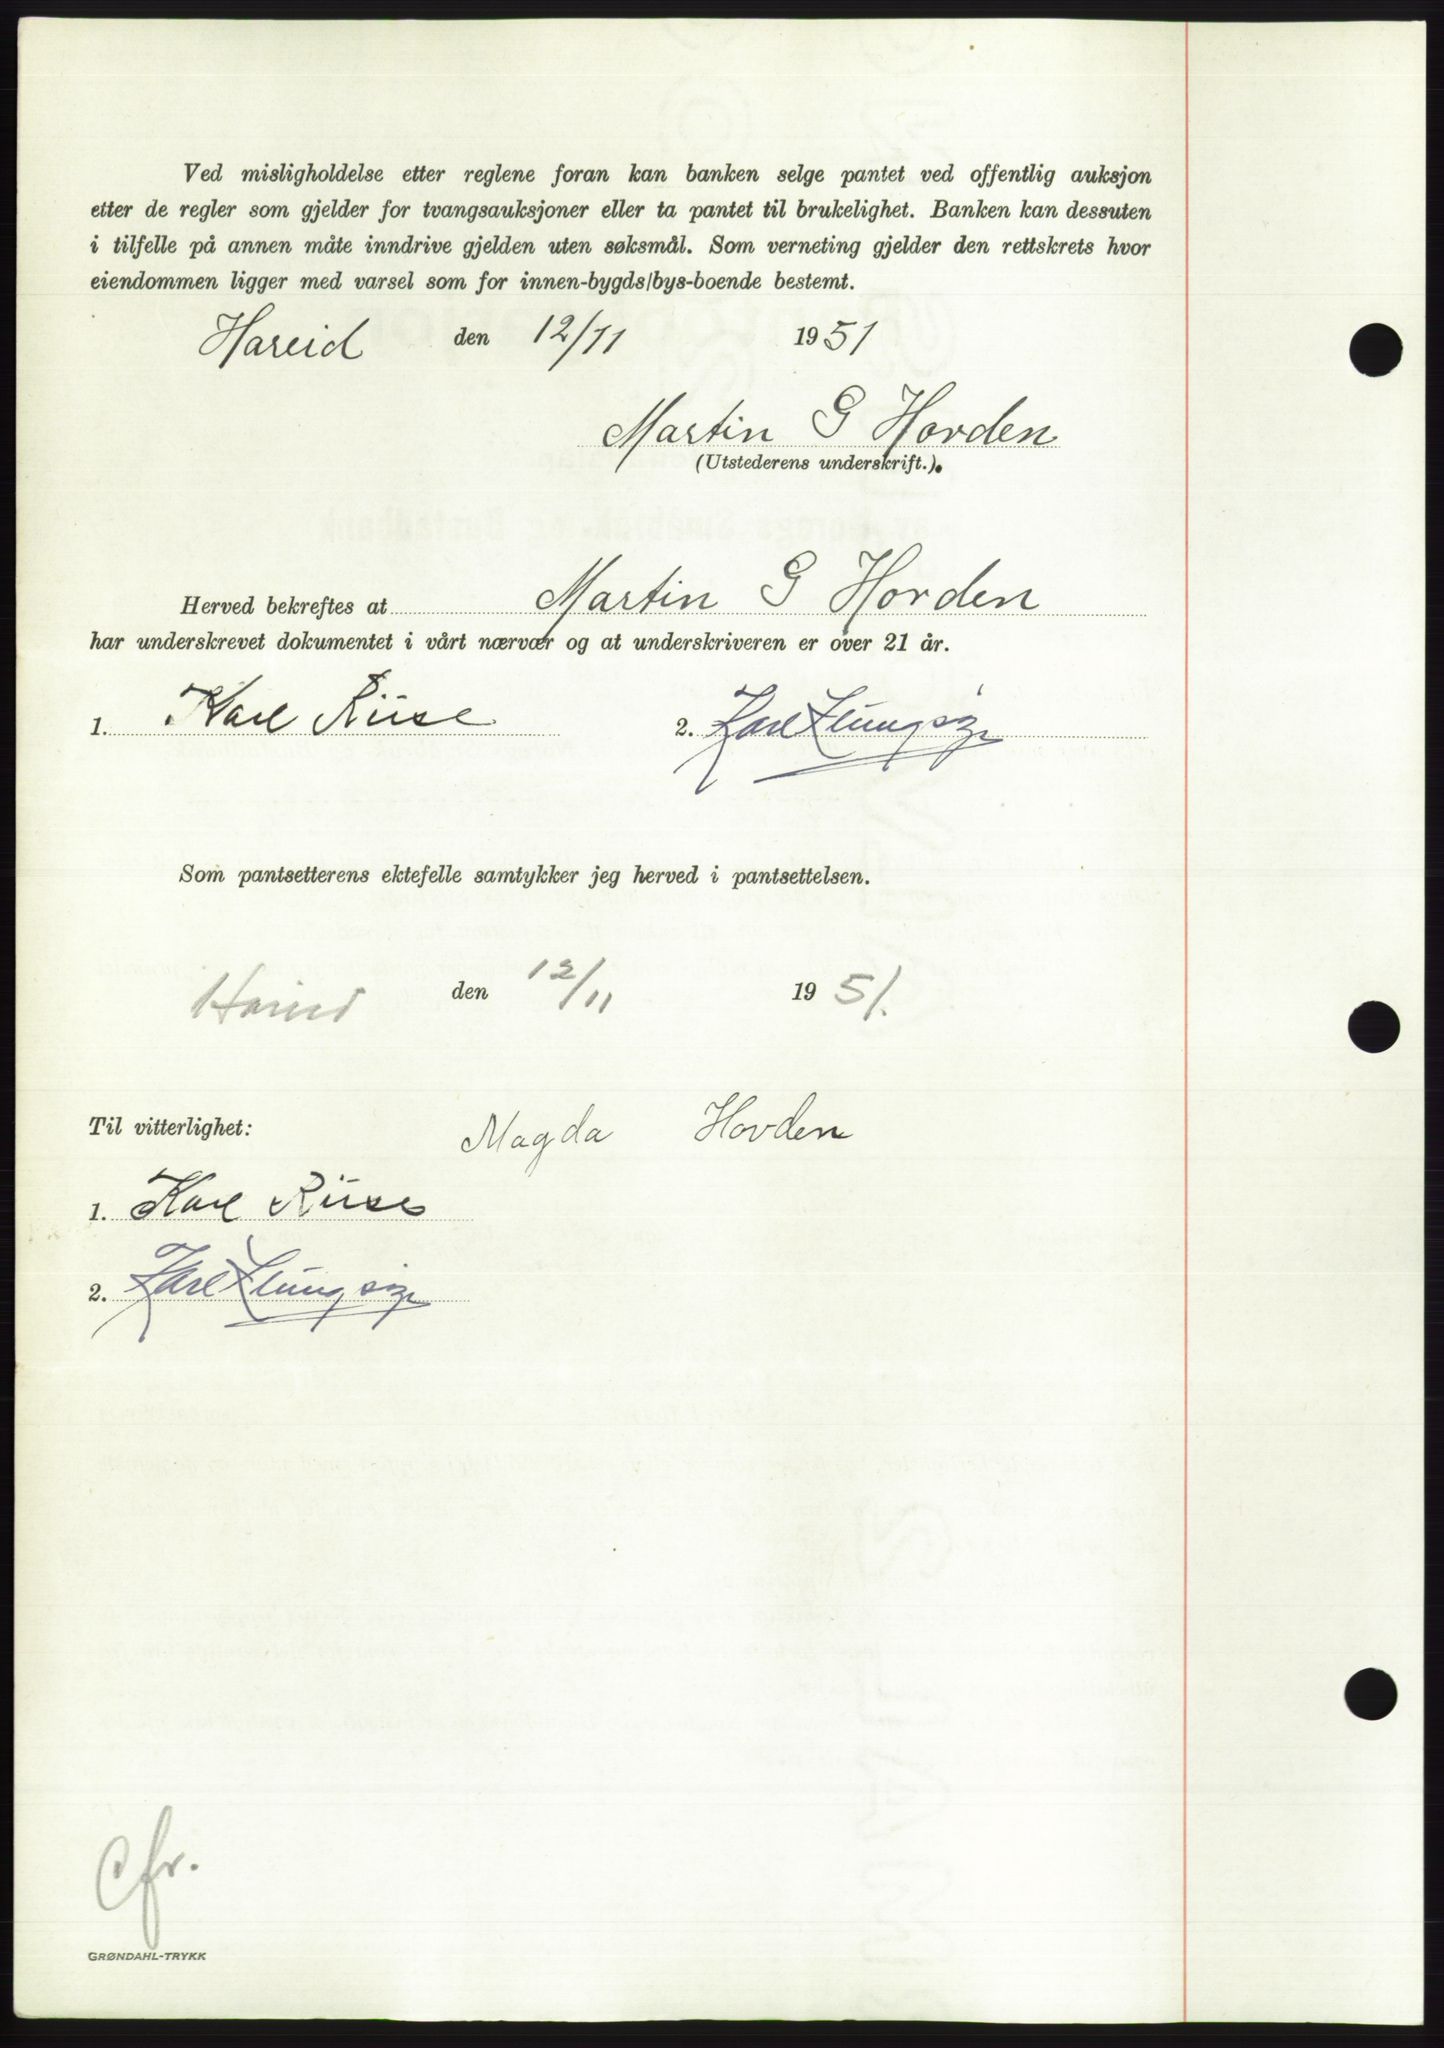 Ved misligholdelse etter reglene foran kan banken selge pantet ved offentlig auksjon
etter de regler som gjelder for tvangsauksjoner eller ta pantet til brukelighet. Banken kan dessuten
i tilfelle på annen måte inndrive gjelden uten søksmål. Som verneting gjelder den rettskrets hvor
eiendommen ligger med varsel som for innen-bygds/bys-boende bestemt.
Hareid den 12/11 1951
Martin G Hovden
(Utstederens underskrift.).
Herved bekreftes at Martin G Hovden
har underskrevet dokumentet i vårt nærvær og at underskriveren er over 21 år.
1. Karl Riise 2. Karl
Som pantsetterens ektefelle samtykker jeg herved i pantsettelsen.
Hareid den 12/11 1951.
Til vitterlighet: Magda Hovden
1. Karl Riise
2. Karl
Cfr.
GRØNDAHL-TRYKK